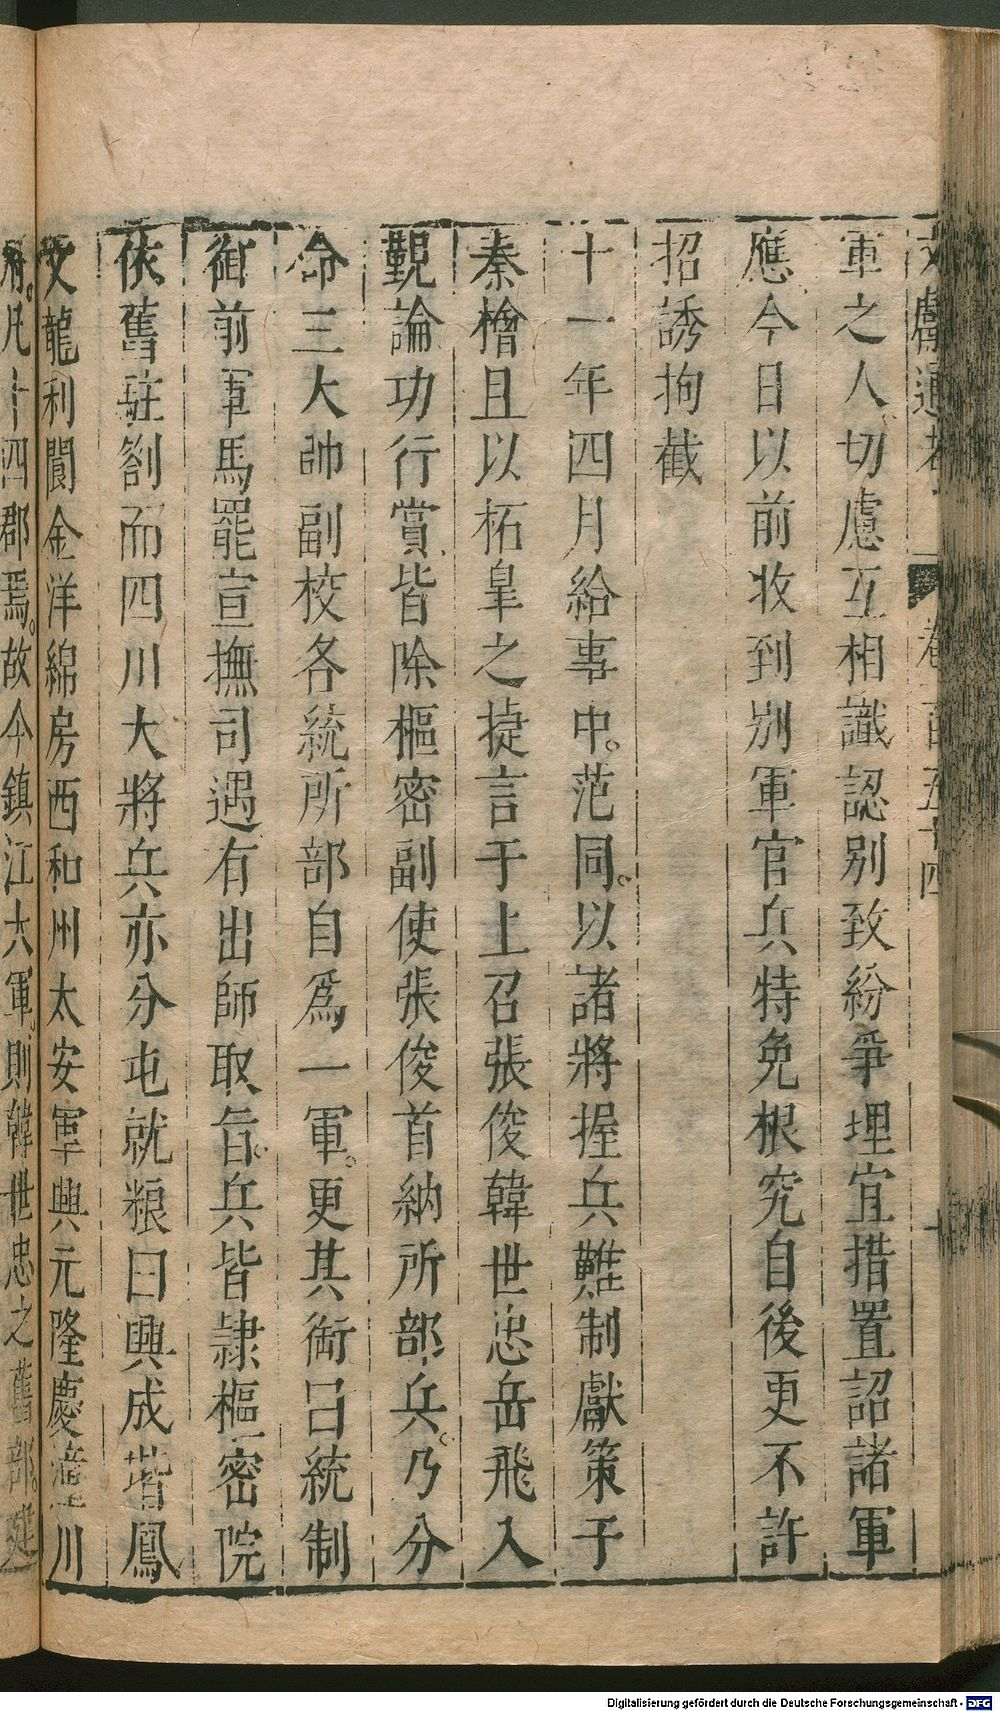 文獻通考 卷一百五十四 十
軍之人切慮互相識認別致紛爭理宜措置詔諸軍
應今日以前收到別軍官兵特免根究自後更不許
招誘拘截
十一年四月給事中。范同。以諸將握兵難制獻策于
秦檜且以柘皐之捷言于上召張俊韓世忠岳飛入
覲論功行賞皆除樞密副使張俊首納所部兵。乃分
命三大帥副校各統所部自爲一軍。更其銜曰統制
御前軍馬罷宣撫司遇有出師取旨。兵皆隷樞密院
依舊駐劄而四川大將兵亦分屯就粮曰興成堦鳳
文龍利閬金洋綿房西和州太安軍興元隆慶潼川
府。凡十四郡焉。故今鎮江大軍。則韓世忠之舊部。
Digitalisierung gefördert durch die Deutsche Forschungsgemeinschaft - DFG